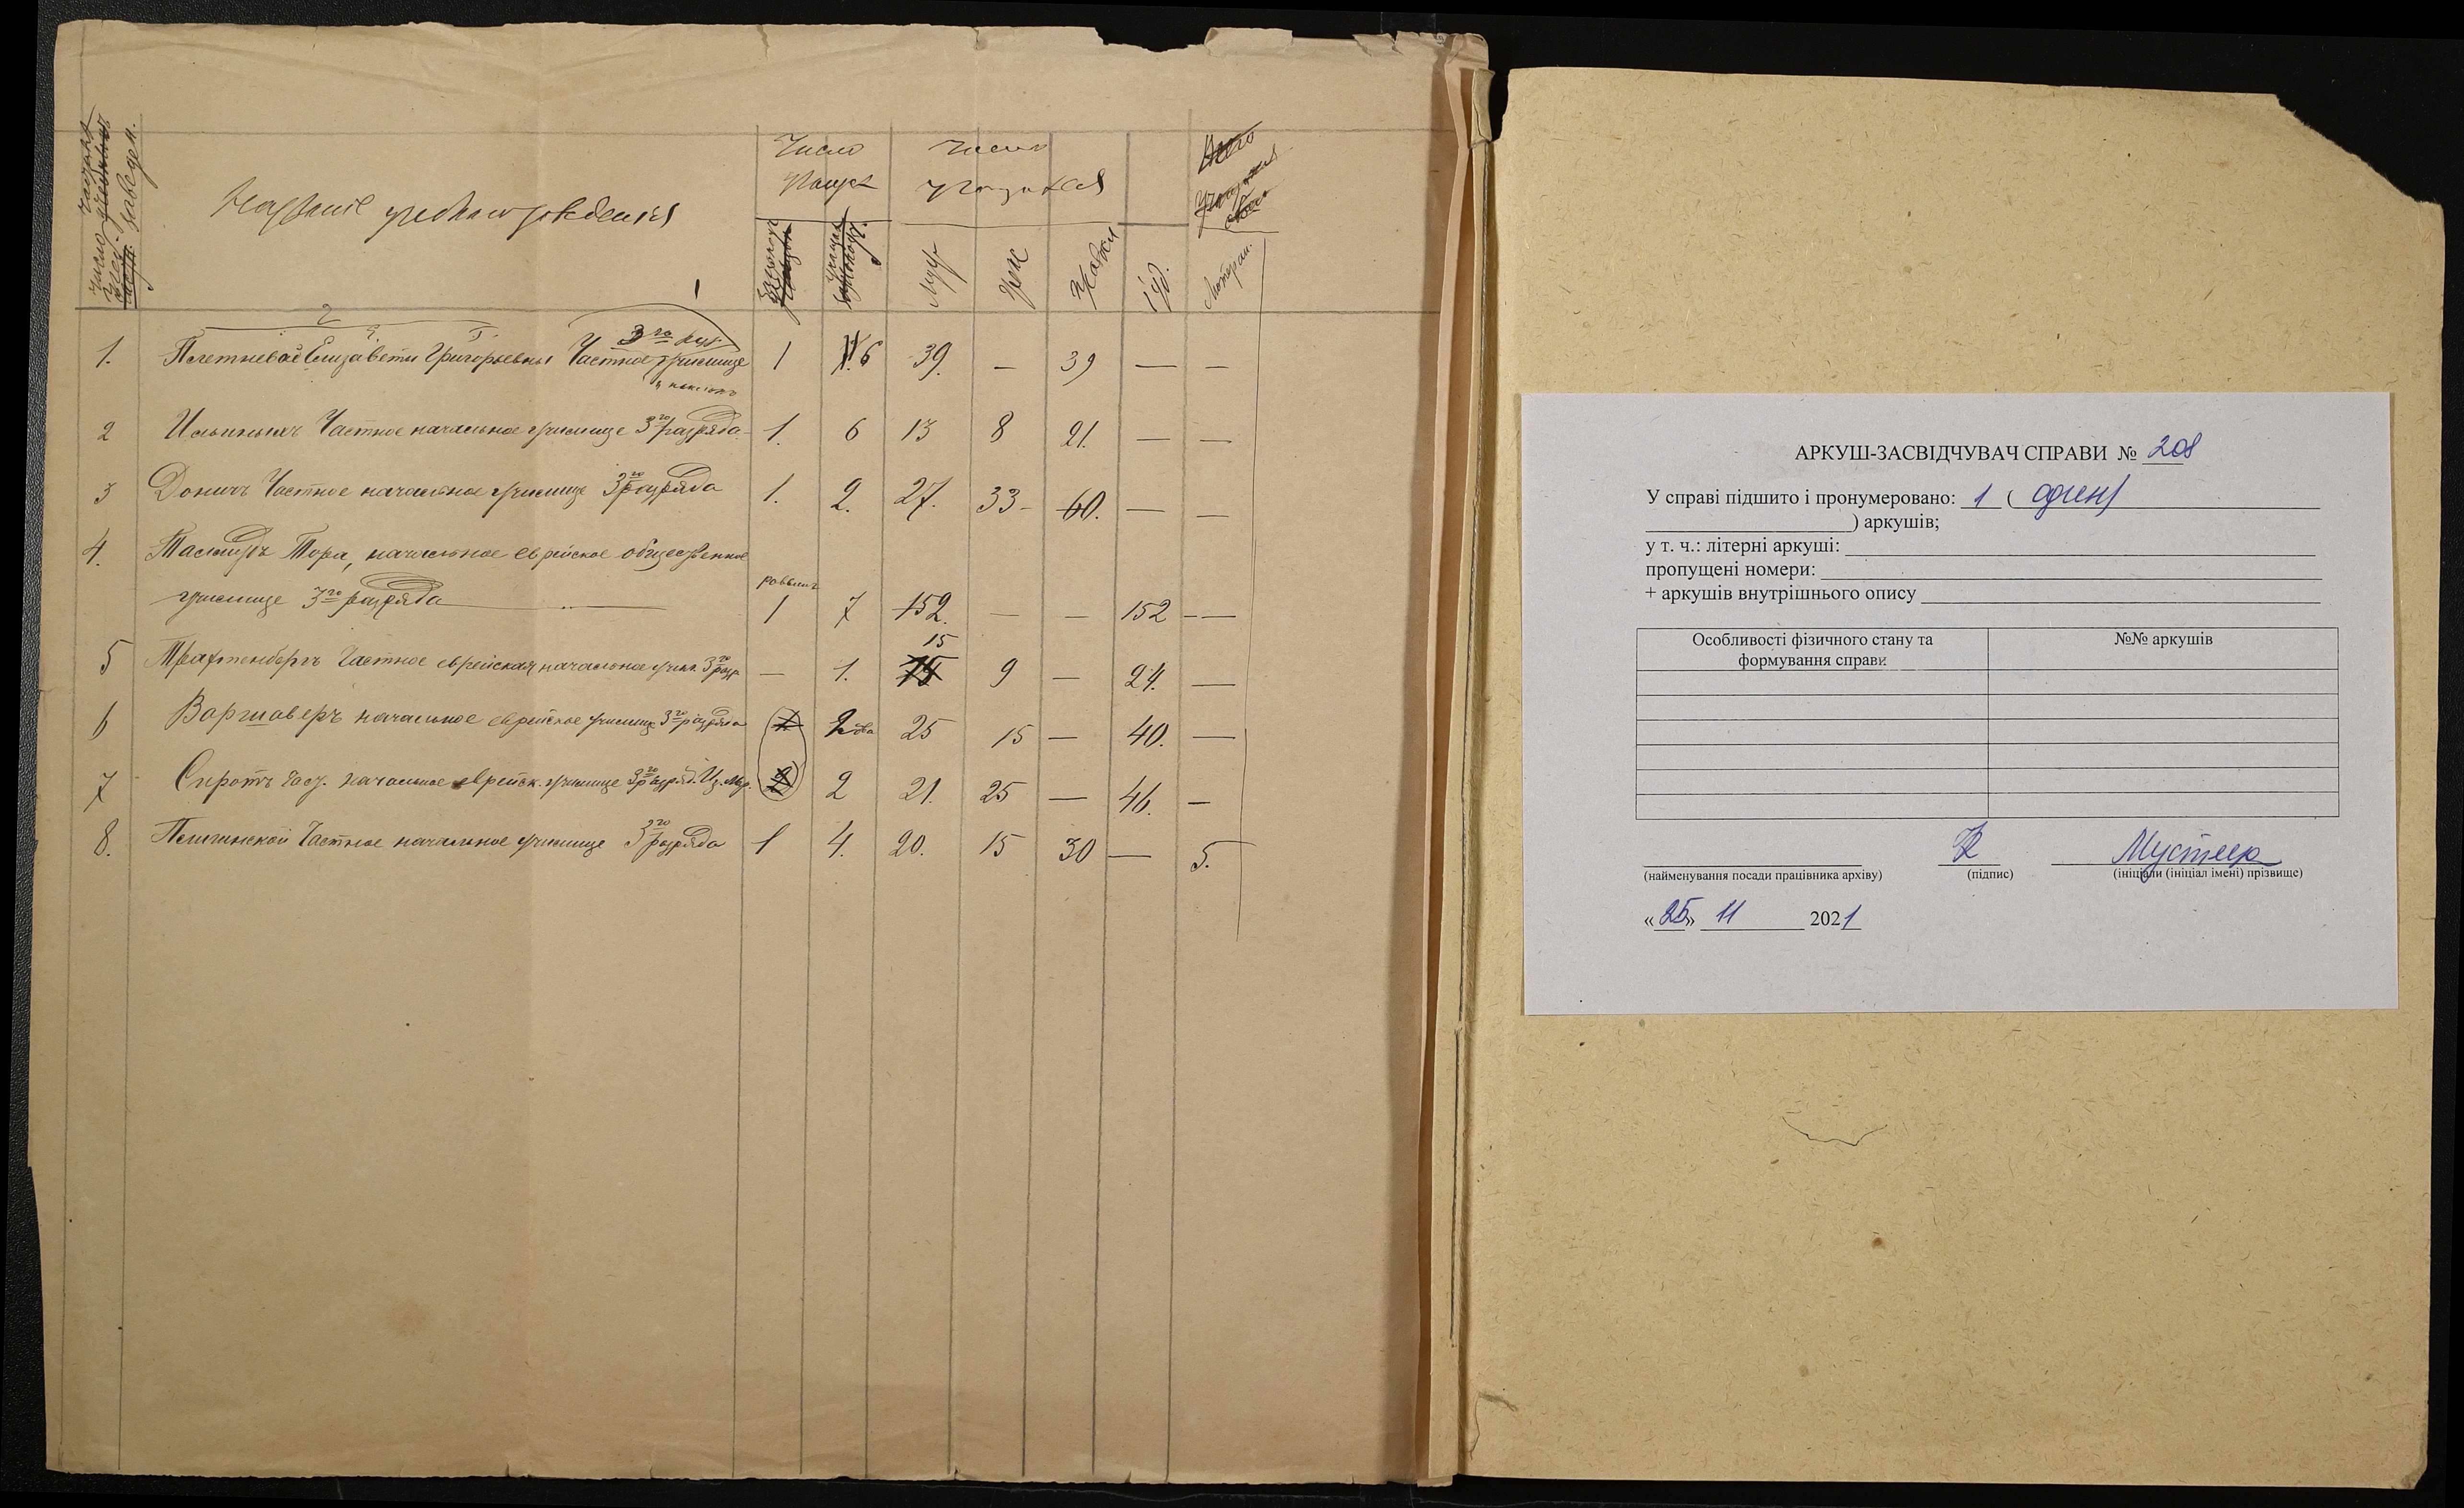 Число
учащ.
заведен.
Названіе учебнаго заведенія
Число
учащ.
Число
учащихся
Муж
Жен
Правосл
Іуд.
Лютеран.
1
1. Плетневой Елизаветы Григорьевны Частное училище 3го раз. 1 6 39. — 39 — —
и пансіонъ
2 Ильиныхъ Частное начальное училище 3го разряда 1. 6 13 8 21. — —
3 Доничъ Частное начальное училище 3го разряда 1. 2. 27. 33 — 60. — —
4. Талмудъ Тора, начальное еврейское общественное
раввинъ
училище 3го разряда 1 7 152. — — 152 — —
15
5 Трахтенбергъ Частное еврейская начальное учил. 3го разр. — 1. 15 9 — 24. —
6 Варшаверъ начальное еврейское училище 3го разряда 1 2 два 25 15 — 40. —
7 Сиротъ Част. начальное еврейск. училище 3го разряд. 2 2 21. 25 — 46. —
8. Пличинской Частное начальное училище 3го разряда 1 4. 20. 15 30 — 5.
АРКУШ-ЗАСВІДЧУВАЧ СПРАВИ № 208
У справі підшито і пронумеровано: 1 ( один)
) аркушів;
у т. ч.: літерні аркуші:
пропущені номери:
+ аркушів внутрішнього опису
Особливості фізичного стану та
формування справи
№№ аркушів
Мустеєр
(найменування посади працівника архіву) (підпис) (ініціали (ініціал імені) прізвище)
«25» 11 2021